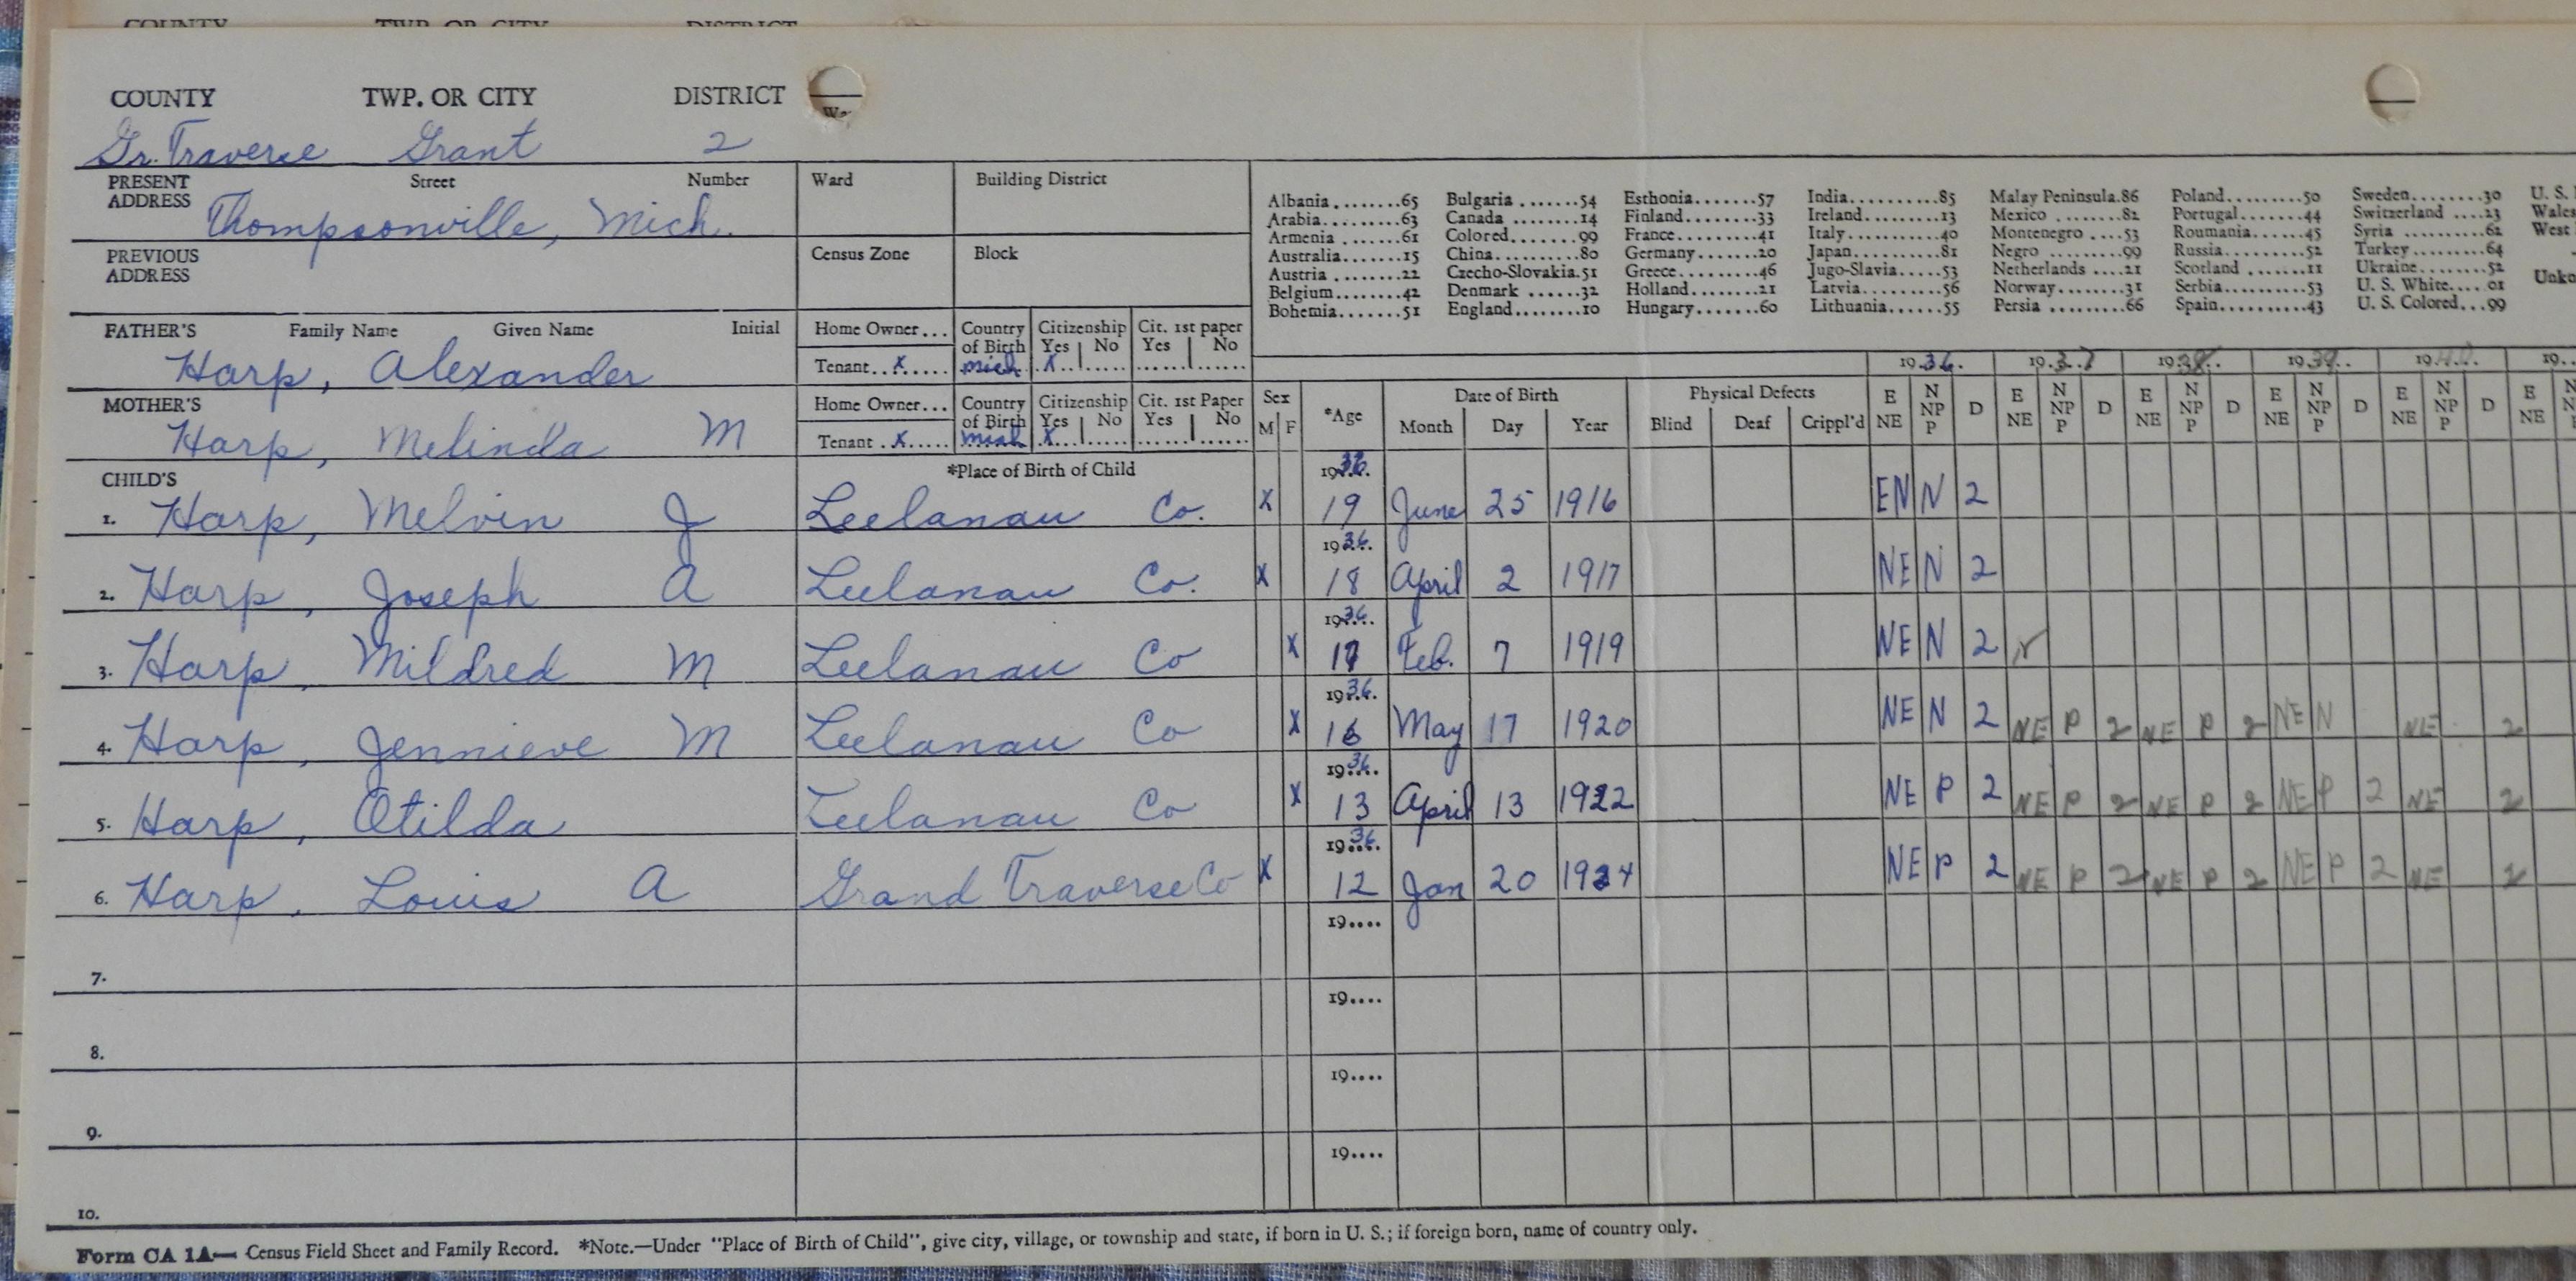 COUNTY TWP. OR CITY DISTRICT
COUNTY TWP. OR CITY DISTRICT
Gr. Traverse Grant 2
PRESENT ADDRESS Street Number Ward Building District
Thompsonville, Mich.
Albania........65 Bulgaria.......54 Esthonia.......57 India...........85 Malay Peninsula.86 Poland.........50 Sweden........30 U. S.
Arabia.........63 Canada ........14 Finland........33 Ireland.........13 Mexico ........82 Portugal.......44 Switzerland ....23 Wales
Armenia .......61 Colored........99 France.........41 Italy...........40 Montenegro .....53 Roumania.......45 Syria ..........62 West
Australia......15 China..........80 Germany........20 Japan...........81 Negro ..........99 Russia.........52 Turkey ........64
Austria .......22 Czecho-Slovakia.51 Greece.........46 Jugo-Slavia.....53 Netherlands ....21 Scotland .......11 Ukraine........52
Belgium........42 Denmark .......32 Holland........21 Latvia..........56 Norway.........31 Serbia.........53 U. S. White....01
Bohemia........51 England........10 Hungary........60 Lithuania.......55 Persia .........66 Spain..........43 U. S. Colored...99
PREVIOUS ADDRESS Census Zone Block
FATHER'S Family Name Given Name Initial Home Owner... Country of Birth Citizenship Yes No Cit. 1st paper Yes No
Harp, Alexander Tenant..x..... Mich x
1936. 193.7 1938. 1939. 1940. 19..
MOTHER'S Home Owner... Country of Birth Citizenship Yes No Cit. 1st Paper Yes No
Harp, Melinda M Tenant.x..... Mich x
Sex M F *Age Date of Birth Month Day Year Physical Defects Blind Deaf Crippl'd E NE N NP P D E NE N NP P D E NE N NP P D E NE N NP P D E NE N NP P D E NE N
CHILD'S *Place of Birth of Child 1936.
1. Harp, Melvin J Leelanau Co. x 19 June 25 1916 EN N 2
1936.
2. Harp, Joseph A Leelanau Co. x 18 April 2 1917 NE N 2
1936...
3. Harp, Mildred M Leelanau Co x 17 Feb. 7 1919 NE N 2 ✓
1936.
4. Harp, Jennieve M Leelanau Co x 16 May 17 1920 NE N 2 NE P 2 NE P 2 NE N NE 2
1936.
5. Harp, Otilda Leelanau Co x 13 April 13 1922 NE P 2 NE P 2 NE P 2 NE P 2 NE 2
1936.
6. Harp, Louis A Grand Traverse Co x 12 Jan 20 1924 NE P 2 NE P 2 NE P 2 NE P 2 NE 2
19....
7.
19....
8.
19....
9.
19....
10.
Form CA 1A— Census Field Sheet and Family Record. *Note.—Under "Place of Birth of Child", give city, village, or township and state, if born in U. S.; if foreign born, name of country only.